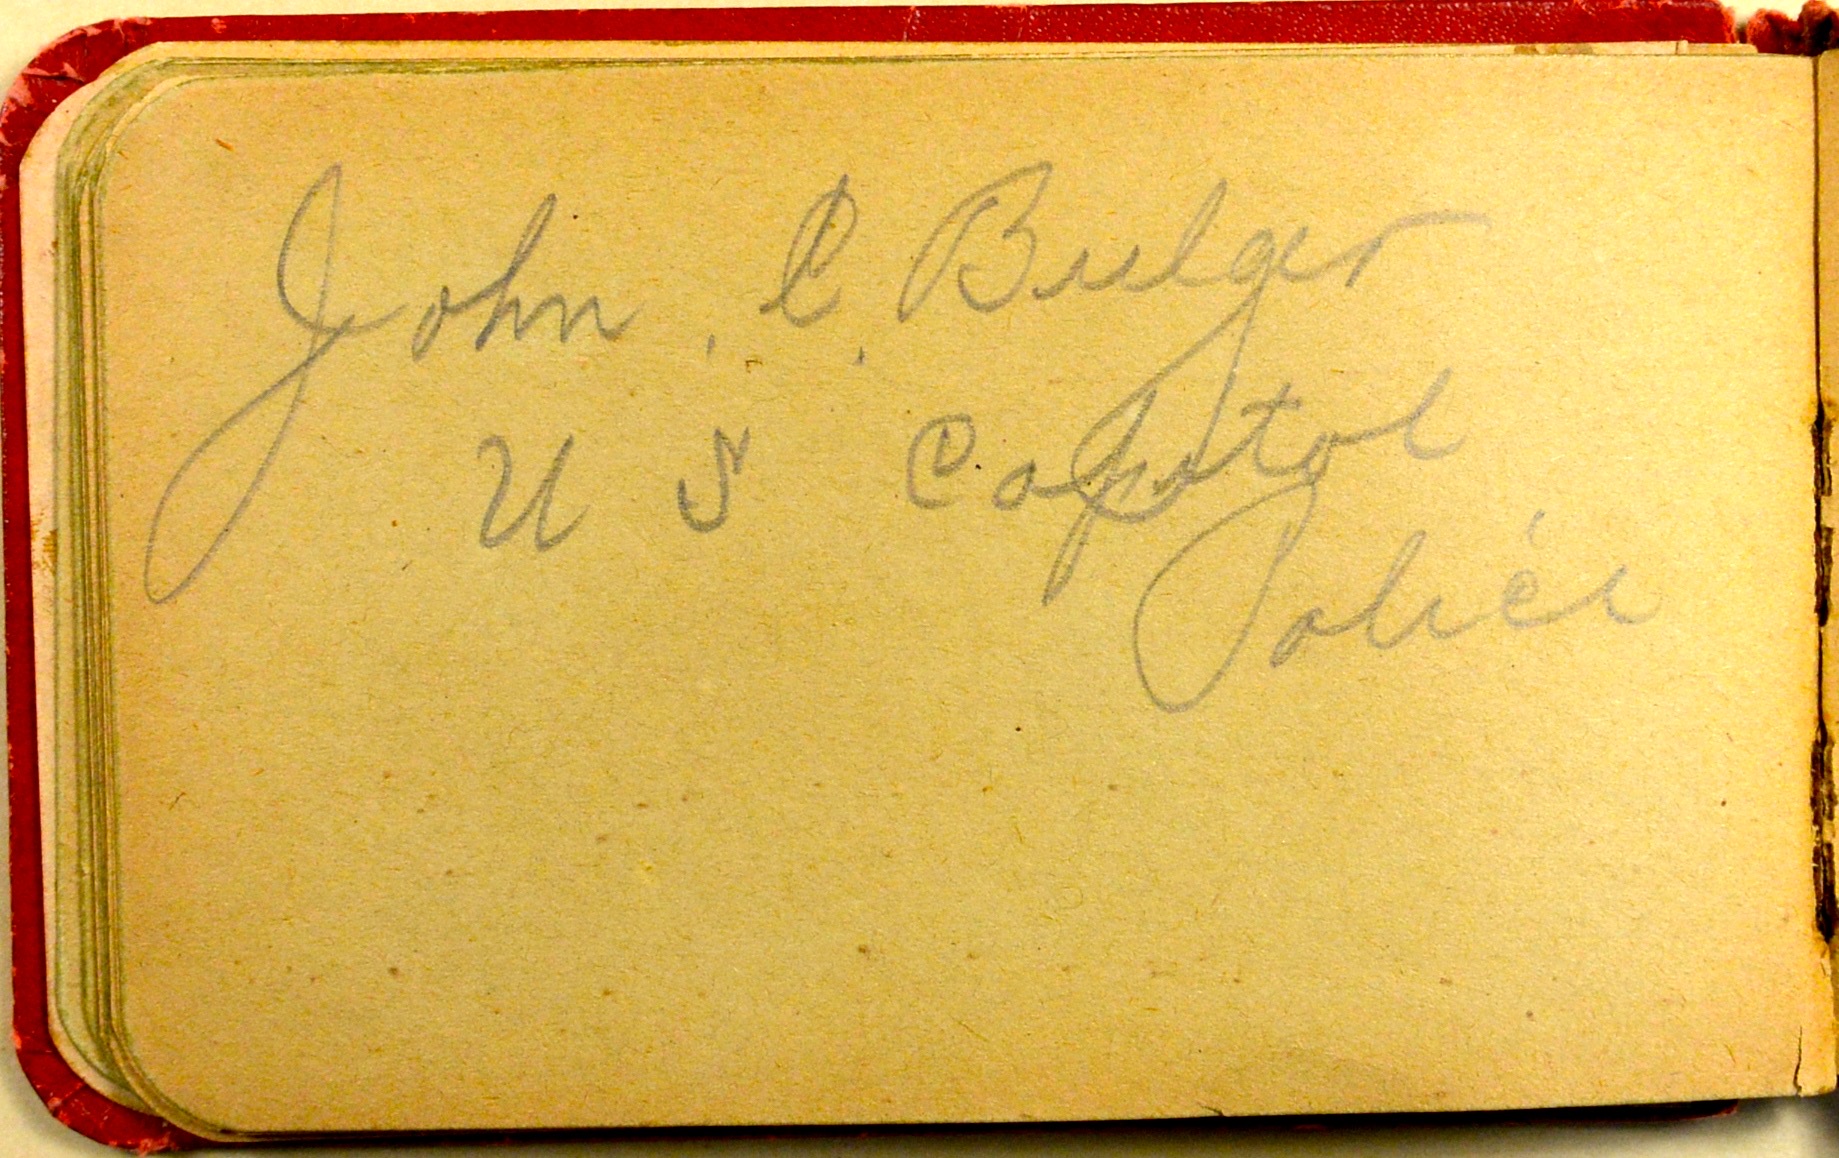 John . C. Bulger
U S Capitol
Police